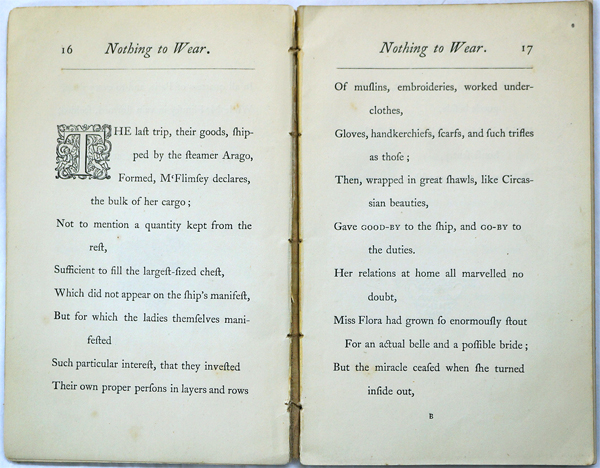 16 Nothing to Wear.
THE laſt trip, their goods, ſhip-
ped by the ſteamer Arago,
Formed, M‘Flimſey declares,
the bulk of her cargo;
Not to mention a quantity kept from the
reſt,
Sufficient to fill the largeſt-ſized cheſt,
Which did not appear on the ſhip's manifeſt,
But for which the ladies themſelves mani-
feſted
Such particular intereſt, that they inveſted
Their own proper perſons in layers and rows
Nothing to Wear. 17
Of muſlins, embroideries, worked under-
clothes,
Gloves, handkerchiefs, ſcarfs, and ſuch trifles
as thoſe;
Then, wrapped in great ſhawls, like Circaſ-
ſian beauties,
Gave GOOD-BY to the ſhip, and GO-BY to
the duties.
Her relations at home all marvelled no
doubt,
Miſs Flora had grown ſo enormouſly ſtout
For an actual belle and a poſſible bride;
But the miracle ceaſed when ſhe turned
inſide out,
B